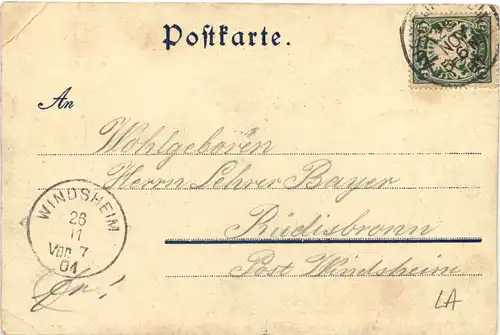 Postkarte.
An
Wohlgeboren
Herrn Lehrer Bayer
Rüdisbronn
Post Windsheim
WINDSHEIM
26
11
Vor 7
01
LA